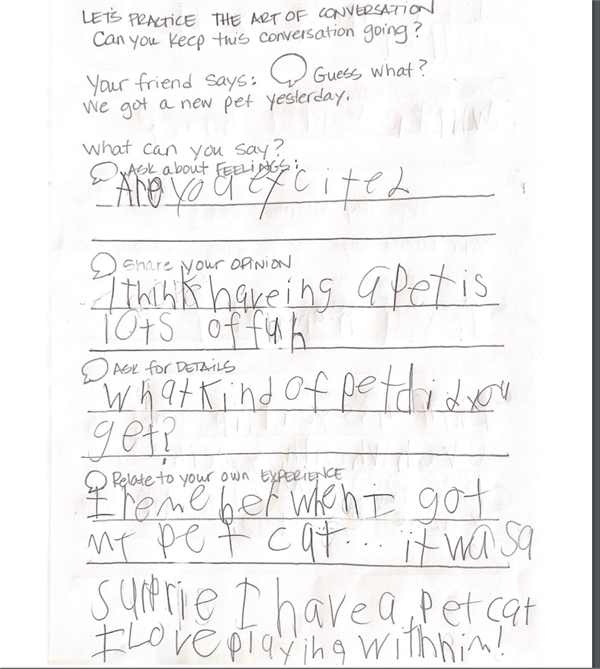 LET'S PRACTICE THE ART OF CONVERSATION
Can you keep this conversation going?
Your friend says: Guess what?
We got a new pet yesterday.
What can you say?
Ask about FEELINGS:
Are you excited
Share your OPINION
I think haveing a pet is
lots of fun
Ask for DETAILS
What kind of pet did you
get?
Relate to your own EXPERIENCE
I remeber when I got
my pet cat... it was a
surprie I have a pet cat
I Love playing with him!